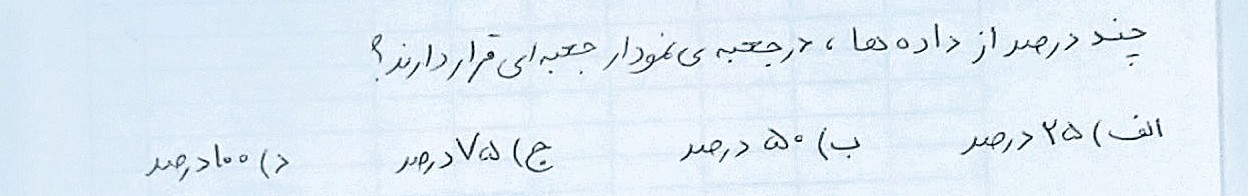 چند درصد از داده ها ، در جعبه ی نمودار جعبه ای قرار دارند؟
الف) ۲۵ درصد ب) ۵۰ درصد ج) ۷۵ درصد د) ۱۰۰ درصد